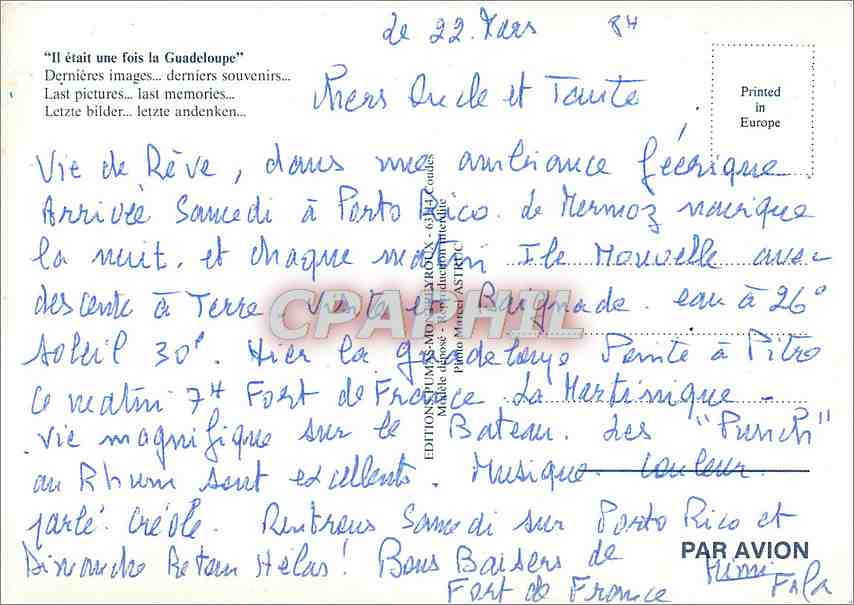 le 22. Mars 84
"Il était une fois la Guadeloupe"
Dernières images... derniers souvenirs...
Last pictures... last memories...
Letzte bilder... letzte andenken...
Printed
in
Europe
Chers Oncle et Tante
Vie de Rêve, dans une ambiance féérique
Arrivée Samedi à Porto Rico. Le Mermoz navigue
la nuit. et chaque matin Ile Nouvelle avec
descente à Terre. visite et Baignade. eau à 26°
soleil 30°. Hier la Guadeloupe Pointe à Pitre
Ce matin 7H Fort de France La Martinique -
Vie magnifique sur le Bateau. Les "Punch"
au Rhum sont excellents. Musique couleur
parlé Créole. Rentrons Samedi sur Porto Rico et
Dimanche Retour Hélas! Bons Baisers de
Fort de France
Mimi
PAR AVION
Modèle déposé - Reproduction interdite
Photo Marcel ASTRUC
CPAPHIL